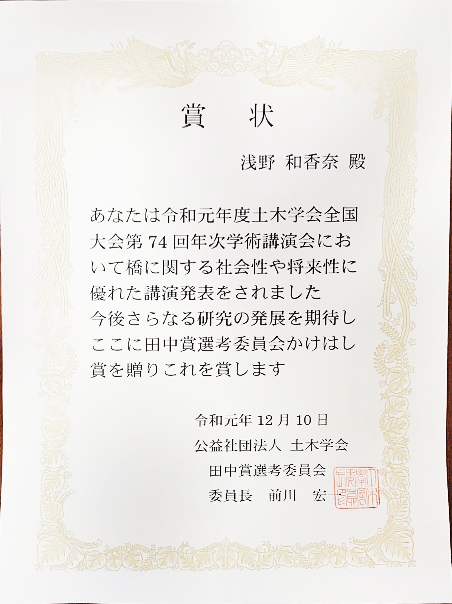 賞 状
浅野 和香奈 殿
あなたは令和元年度土木学会全国
大会第 74 回年次学術講演会にお
いて橋に関する社会性や将来性に
優れた講演発表をされました
今後さらなる研究の発展を期待し
ここに田中賞選考委員会かけはし
賞を贈りこれを賞します
令和元年 12 月 10 日
公益社団法人 土木学会
田中賞選考委員会
委員長 前川 宏一